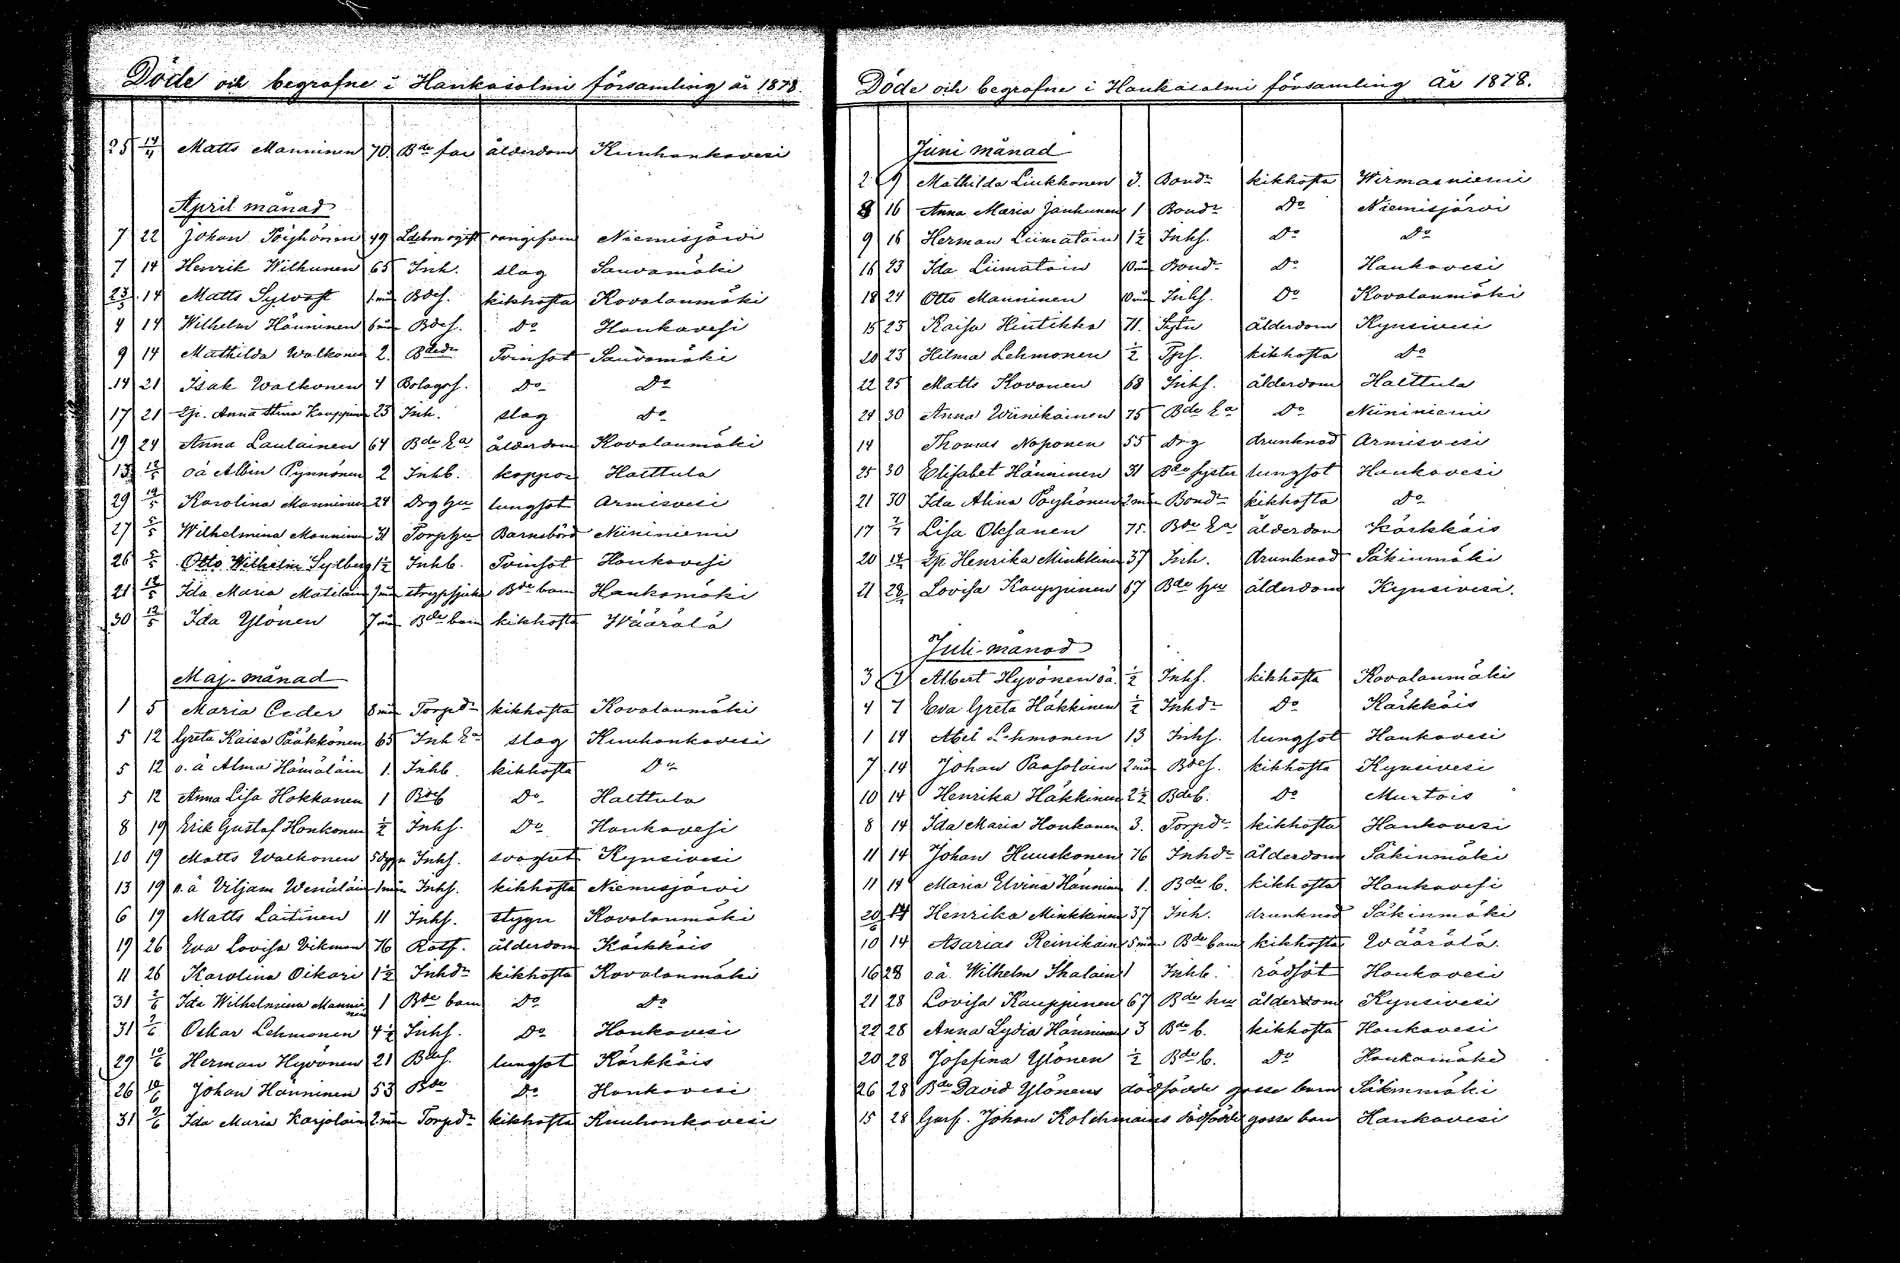 Döde och begrafne i Hankasalmi församling år 1878.
25 14/4 Matts Manninen 70. Bde far ålderdom Kuuhankavesi
April månad
7 22 Johan Pöyhönen 49 vangisom Niemisjärvi
7 14 Henrik Wilhunen 65 Inh. slag Sauvamäki
23/3 14 Matts Sylvast 1 mån Bdes. kikhosta Kovalanmäki
4 14 Wilhelm Hänninen 6 mån Bdes. Do Hankavesi
9 14 Mathilda Walkonen 2. Bdedr Tvinsot Sauvamäki
14 21 Isak Walkonen 4 Bolagsf. Do Do
17 21 Ep. Anna Stina Kauppinen 23 Inh. slag Do
19 24 Anna Laulainen 64 Bde Ea ålderdom Kovalanmäki
13 12/5 oä Albin Pynnönen 2 Inhb. koppor Halttula
29 12/5 Karolina Manninen 24 Drg hu lungsot Armisvesi
27 5/5 Wilhelmina Manninen 31 Torp hu Barnsbörd Niininiemi
26 5/5 Otto Wilhelm Sylberg 1½ Inhb. Tvinsot Hankavesi
21 12/5 Ida Maria Matilain 7 mån strypsjuka Bde barn Hankamäki
30 12/5 Ida Ylönen 7 mån Bde barn kikhosta Wäärälä
Maj-månad
1 5 Maria Ceder 8 mån Torpdr kikhosta Kovalanmäki
5 12 Greta Kaisa Pääkkönen 65 Inh Ea slag Kuuhankavesi
5 12 o.ä Alma Hämäläin 1. Inhb. kikhosta Do
5 12 Anna Lisa Hokkanen 1 Bdeb Do Halttula
8 19 Erik Gustaf Honkonen ½ Inhs. Do Hankavesi
10 19 Matts Walkonen 5 dygn Inhs. svaghet Kynsivesi
13 19 o.ä Viljam Wenäläin 1 mån Inhs. kikhosta Niemisjärvi
6 19 Matts Laitinen 11 Inhs. stygn Kovalanmäki
19 26 Eva Lovisa Vikman 76 Rotf. ålderdom Kärkkäis
11 26 Karolina Oikari 1½ Inhdr kikhosta Kovalanmäki
31 2/6 Ida Wilhelmina Manninen 1 Bde barn Do Do
31 2/6 Oskar Lehmonen 4½ Inhs. Do Hankavesi
29 10/6 Herman Hyvönen 21 Bdes. lungsot Kärkkäis
26 10/6 Johan Hänninen 53 Bde Do Hankavesi
31 9/6 Ida Maria Karjolain 2 mån Torpdr kikhosta Kuuhankavesi
Döde och begrafne i Hankasalmi församling År 1878.
Juni månad
2 9 Mathilda Liukkonen 3. Bondr kikhosta Wirmasniemi
8 16 Anna Maria Janhunen 1 Bondr Do Niemisjärvi
9 16 Herman Liimatain 1½ Inhs. Do Do
16 23 Ida Liimatain 10 mån Bondr Do Hankavesi
18 24 Otto Manninen 10 mån Inhs. Do Kovalanmäki
15 23 Kaisa Hintikka 71. Sytn ålderdom Kynsivesi
20 23 Hilma Lehmonen ½ Tps. kikhosta Do
22 25 Matts Kovanen 68 Inhs. ålderdom Halttula
24 30 Anna Wiinikainen 75 Bde Ea Do Niininiemi
14 Thomas Noponen 55 Drg drunknad Armisvesi
25 30 Elisabet Hänninen 31 Bde syster lungsot Hankavesi
21 30 Ida Alina Pöyhönen 2 mån Bondr kikhosta Do
17 7/7 Lisa Oksanen 75. Bde Ea ålderdom Kärkkäis
20 14/7 Ep Henrika Minkkinen 37 Inh. drunknad Säkinmäki
21 28/7 Lovisa Kauppinen 67 Bde hu ålderdom Kynsivesi.
Juli-månad
3 7 Albert Hyvönen oä ½ Inhs. kikhosta Kovalanmäki
4 7 Eva Greta Häkkinen ½ Inhdr Do Kärkkäis
1 14 Abel Lehmonen 13 Inhs. lungsot Hankavesi
7 14 Johan Paasolain 2 mån Bdes. kikhosta Kynsivesi
10 14 Henrika Häkkinen 2½ Bdeb. Do Murtois
8 14 Ida Maria Honkanen 3. Torpdr kikhosta Hankavesi
11 14 Johan Huuskonen 76 Inhdr ålderdom Säkinmäki
11 14 Maria Elvina Hänninen 1. Bde b. kikhosta Hankavesi
20/6 14 Henrika Minkkinen 37 Inh. drunknad Säkinmäki
10 14 Asarias Reinikain 5 mån Bde barn kikhosta Wäärälä.
16 28 oä. Wilhelm Skalain 1 Inhb. rödsot Hankavesi
21 28 Lovisa Kauppinen 67 Bde hu ålderdom Kynsivesi
22 28 Anna Lydia Hänninen 3 Bde b. kikhosta Hankavesi
20 28 Josefina Ylönen ½ Bde b. Do Hankamäki
26 28 Bde David Ylönens dödfödde gosse barn Säkinmäki
15 28 Johan Kolehmains dödfödde gosse barn Hankavesi